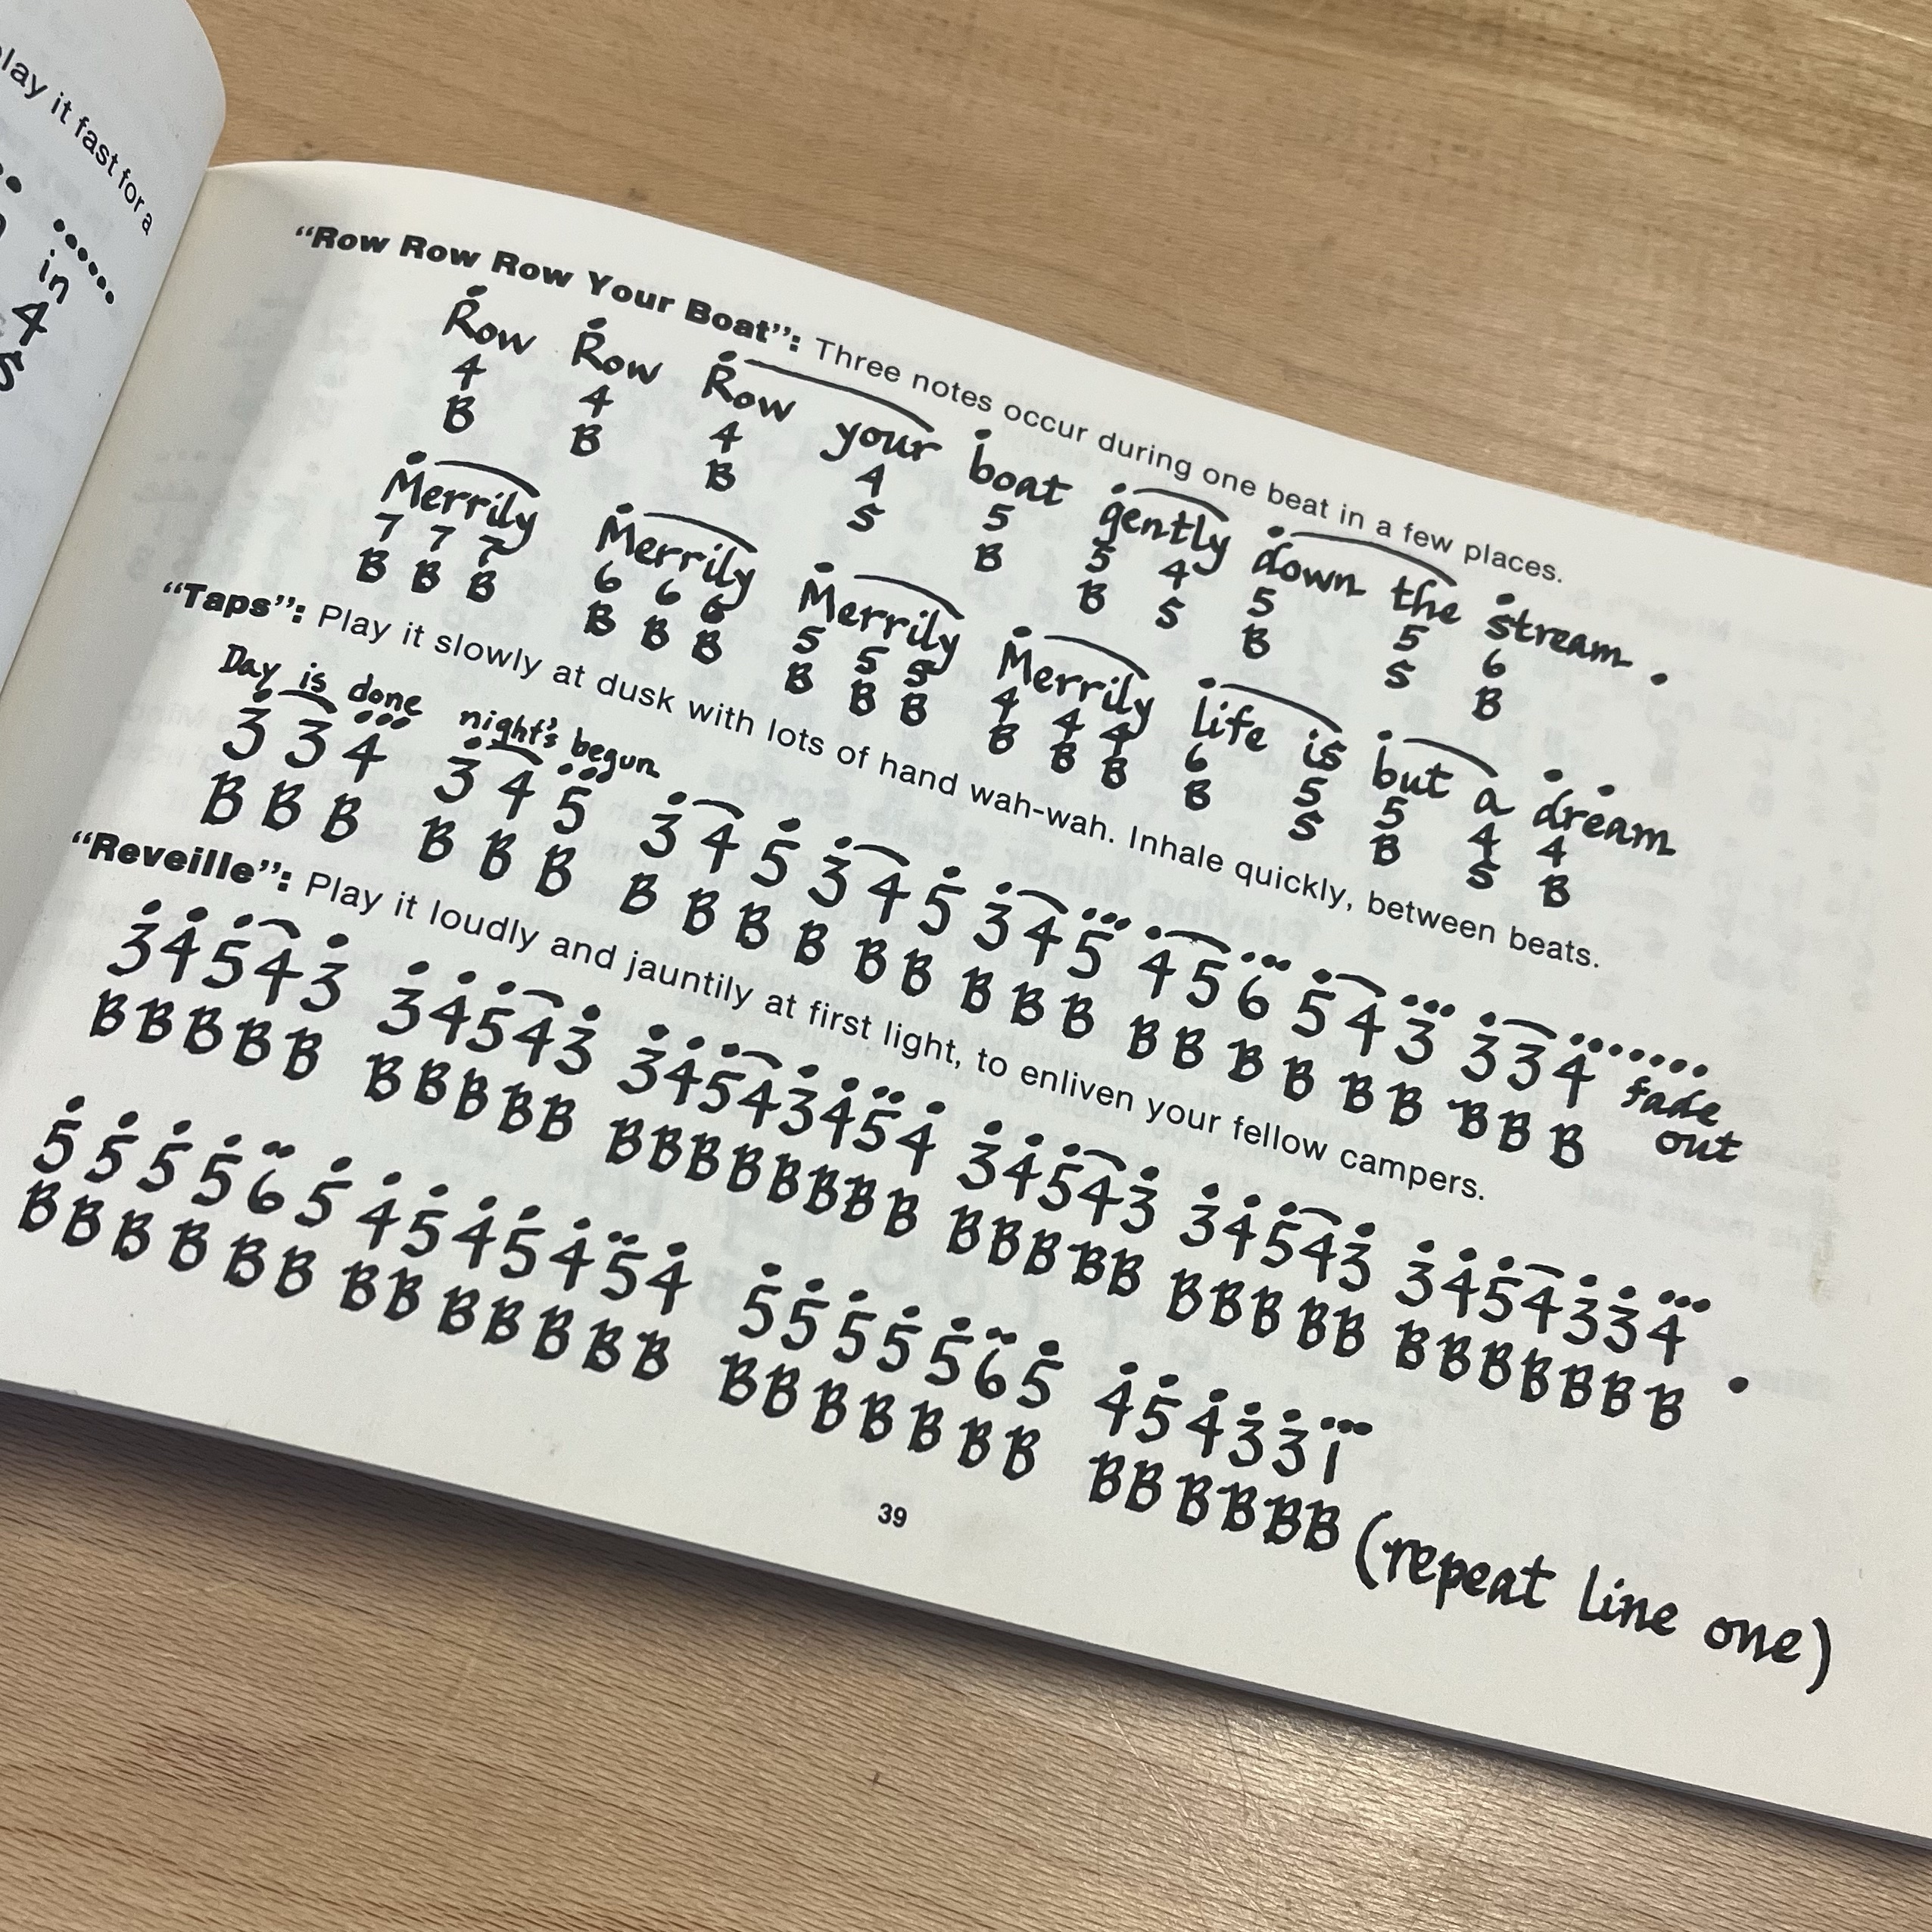 play it fast for a
in
4
S
“Row Row Row Your Boat”: Three notes occur during one beat in a few places.
Row Row Row your boat gently down the stream.
4 4 4 4 5 5 4 5 5 6
B B B S B B S B S B
Merrily Merrily Merrily Merrily life is but a dream
7 7 7 6 6 6 5 5 5 4 4 4 6 5 5 4 4
B B B B B B B B B B B B B S B S B
“Taps”: Play it slowly at dusk with lots of hand wah-wah. Inhale quickly, between beats.
Day is done night's begun
3 3 4 3 4 5 3 4 5 3 4 5 3 4 5 4 5 6 5 4 3 3 3 4 fade out
B B B B B B B B B B B B B B B B B B B B B B B B
“Reveille”: Play it loudly and jauntily at first light, to enliven your fellow campers.
3 4 5 4 3 3 4 5 4 3 3 4 5 4 3 4 5 4 3 4 5 4 3 3 4 5 4 3 3 4 5 4 3 3 4
B B B B B B B B B B B B B B B B B B B B B B B B B B B B B B B B B B B
5 5 5 5 6 5 4 5 4 5 4 5 4 5 5 5 5 5 6 5 4 5 4 3 3 1
B B B B B B B B B B B B B B B B B B B B B B B B B B (repeat line one)
39